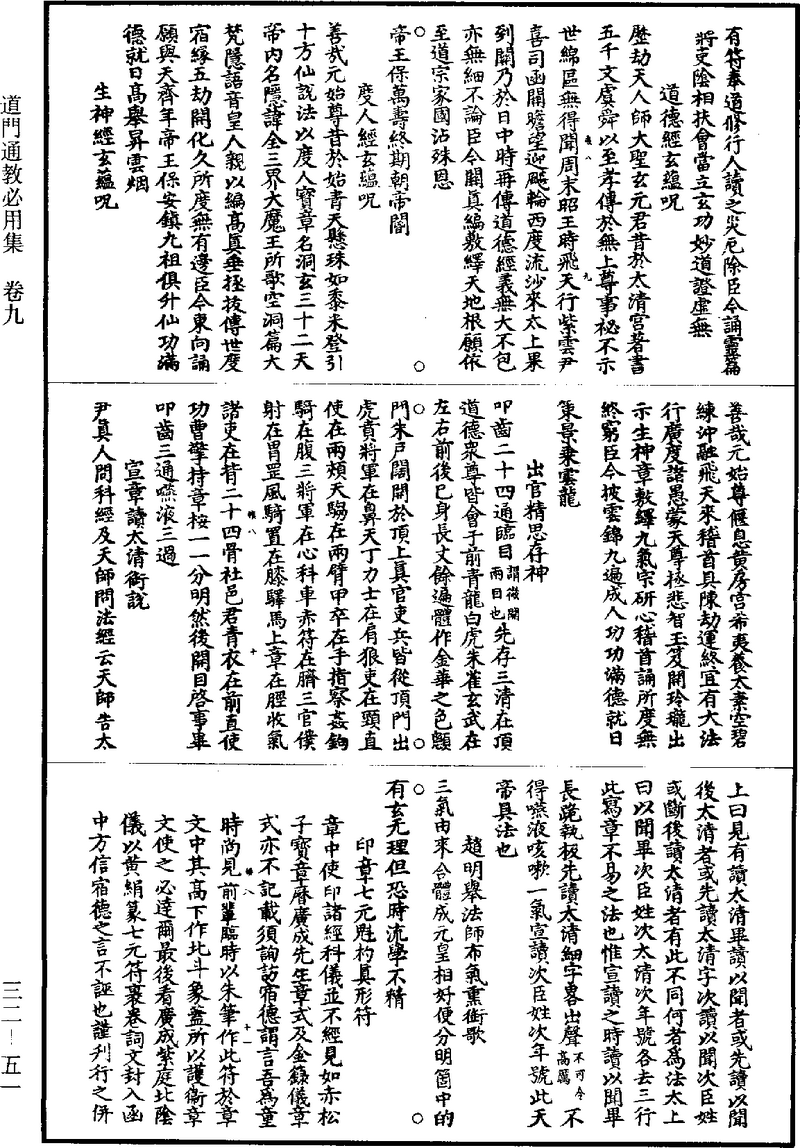 道門通教必用集　卷九
有符奉道修行人讀之災厄除臣今誦靈篇
將吏陰相扶會當立玄功妙道證虛無
道德經玄蘊呪
歷劫天人師大聖玄元君昔於太清宮著書
五千文虞舜以至孝傳於無上尊事祕不示
世綿區無得聞周末昭王時飛天行紫雲尹
喜司函關瞻望迎飈輪西度流沙來太上果
到關乃於日中時再傳道德經義無大不包
亦無細不論臣今開真編敷繹天地根願依
至道宗家國沾殊恩
帝王保萬壽終期朝帝閽
度人經玄蘊呪
善哉元始尊昔於始青天懸珠如黍米登引
十方仙說法以度人寶章名洞玄三十二天
帝內名隱諱全三界大魔王所歌空洞篇大
梵隱語音皇人親以編高真垂拯拔傳世度
宿緣五劫開化久所度無有邊臣今東向誦
願與天齊年帝王保安鎮九祖俱升仙功滿
德就日高舉昇雲烟
生神經玄蘊呪
善哉元始尊偃息黃房宮希夷養太素空碧
練沖融飛天來稽首具陳劫運終宜有大法
行廣度諸愚蒙天尊拯悲智玉笈開玲瓏出
示生神章敷繹九氣宗研心稽首誦所度無
終窮臣今披雲錦九遍成人功功滿德就日
策景乘雲龍
出官精思存神
叩齒二十四通臨目謂微閉兩目也先存三清在頂
道德眾尊皆會于前青龍白虎朱雀玄武在
左右前後已身長丈餘遍體作金華之色顖
門朱戶闊開於頂上真官吏兵皆從頂門出
虎賁將軍在鼻天丁力士在肩狼吏在頸直
使在兩頰天騶在兩臂甲卒在手指察姦鉤
騎在腹三將軍在心科車赤符在臍三官僕
射在胃罡風騎置在膝驛馬上章在脛收氣
諸吏在背二十四骨社邑君青衣在前直使
功曹擎持章桉一一分明然後開目啓事畢
叩齒三通嚥液三過
宣章讀太清銜說
尹真人問科經及天師問法經云天師告太
上曰見有讀太清畢讀以聞者或先讀以聞
後太清者或先讀太清字次讀以聞次臣姓
或斷後讀太清者有此不同何者為法太上
曰以聞畢次臣姓次太清次年號各去三行
此寫章不易之法也惟宣讀之時讀以聞畢
長跪執板先讀太清細字畧出聲不可令高厲不
得嚥液咳嗽一氣宣讀次臣姓次年號此天
帝具法也
趙明舉法師布氣熏銜歌
三氣由來合體成元皇相好便分明箇中的
有玄元理但恐時流學不精
印章七元魁杓真形符
章中使印諸經科儀並不經見如赤松
子寶章曆廣成先生章式及金籙儀章
式亦不記載須詢訪宿德謂言吾為童
時尚見前輩臨時以朱筆作此符於章
文中其高下作北斗象蓋所以護衞章
文使之必達爾最後看廣成紫庭北陰
儀以黃絹篆七元符裹卷詞文封入函
中方信宿德之言不誣也謹刋行之併
三二—五一